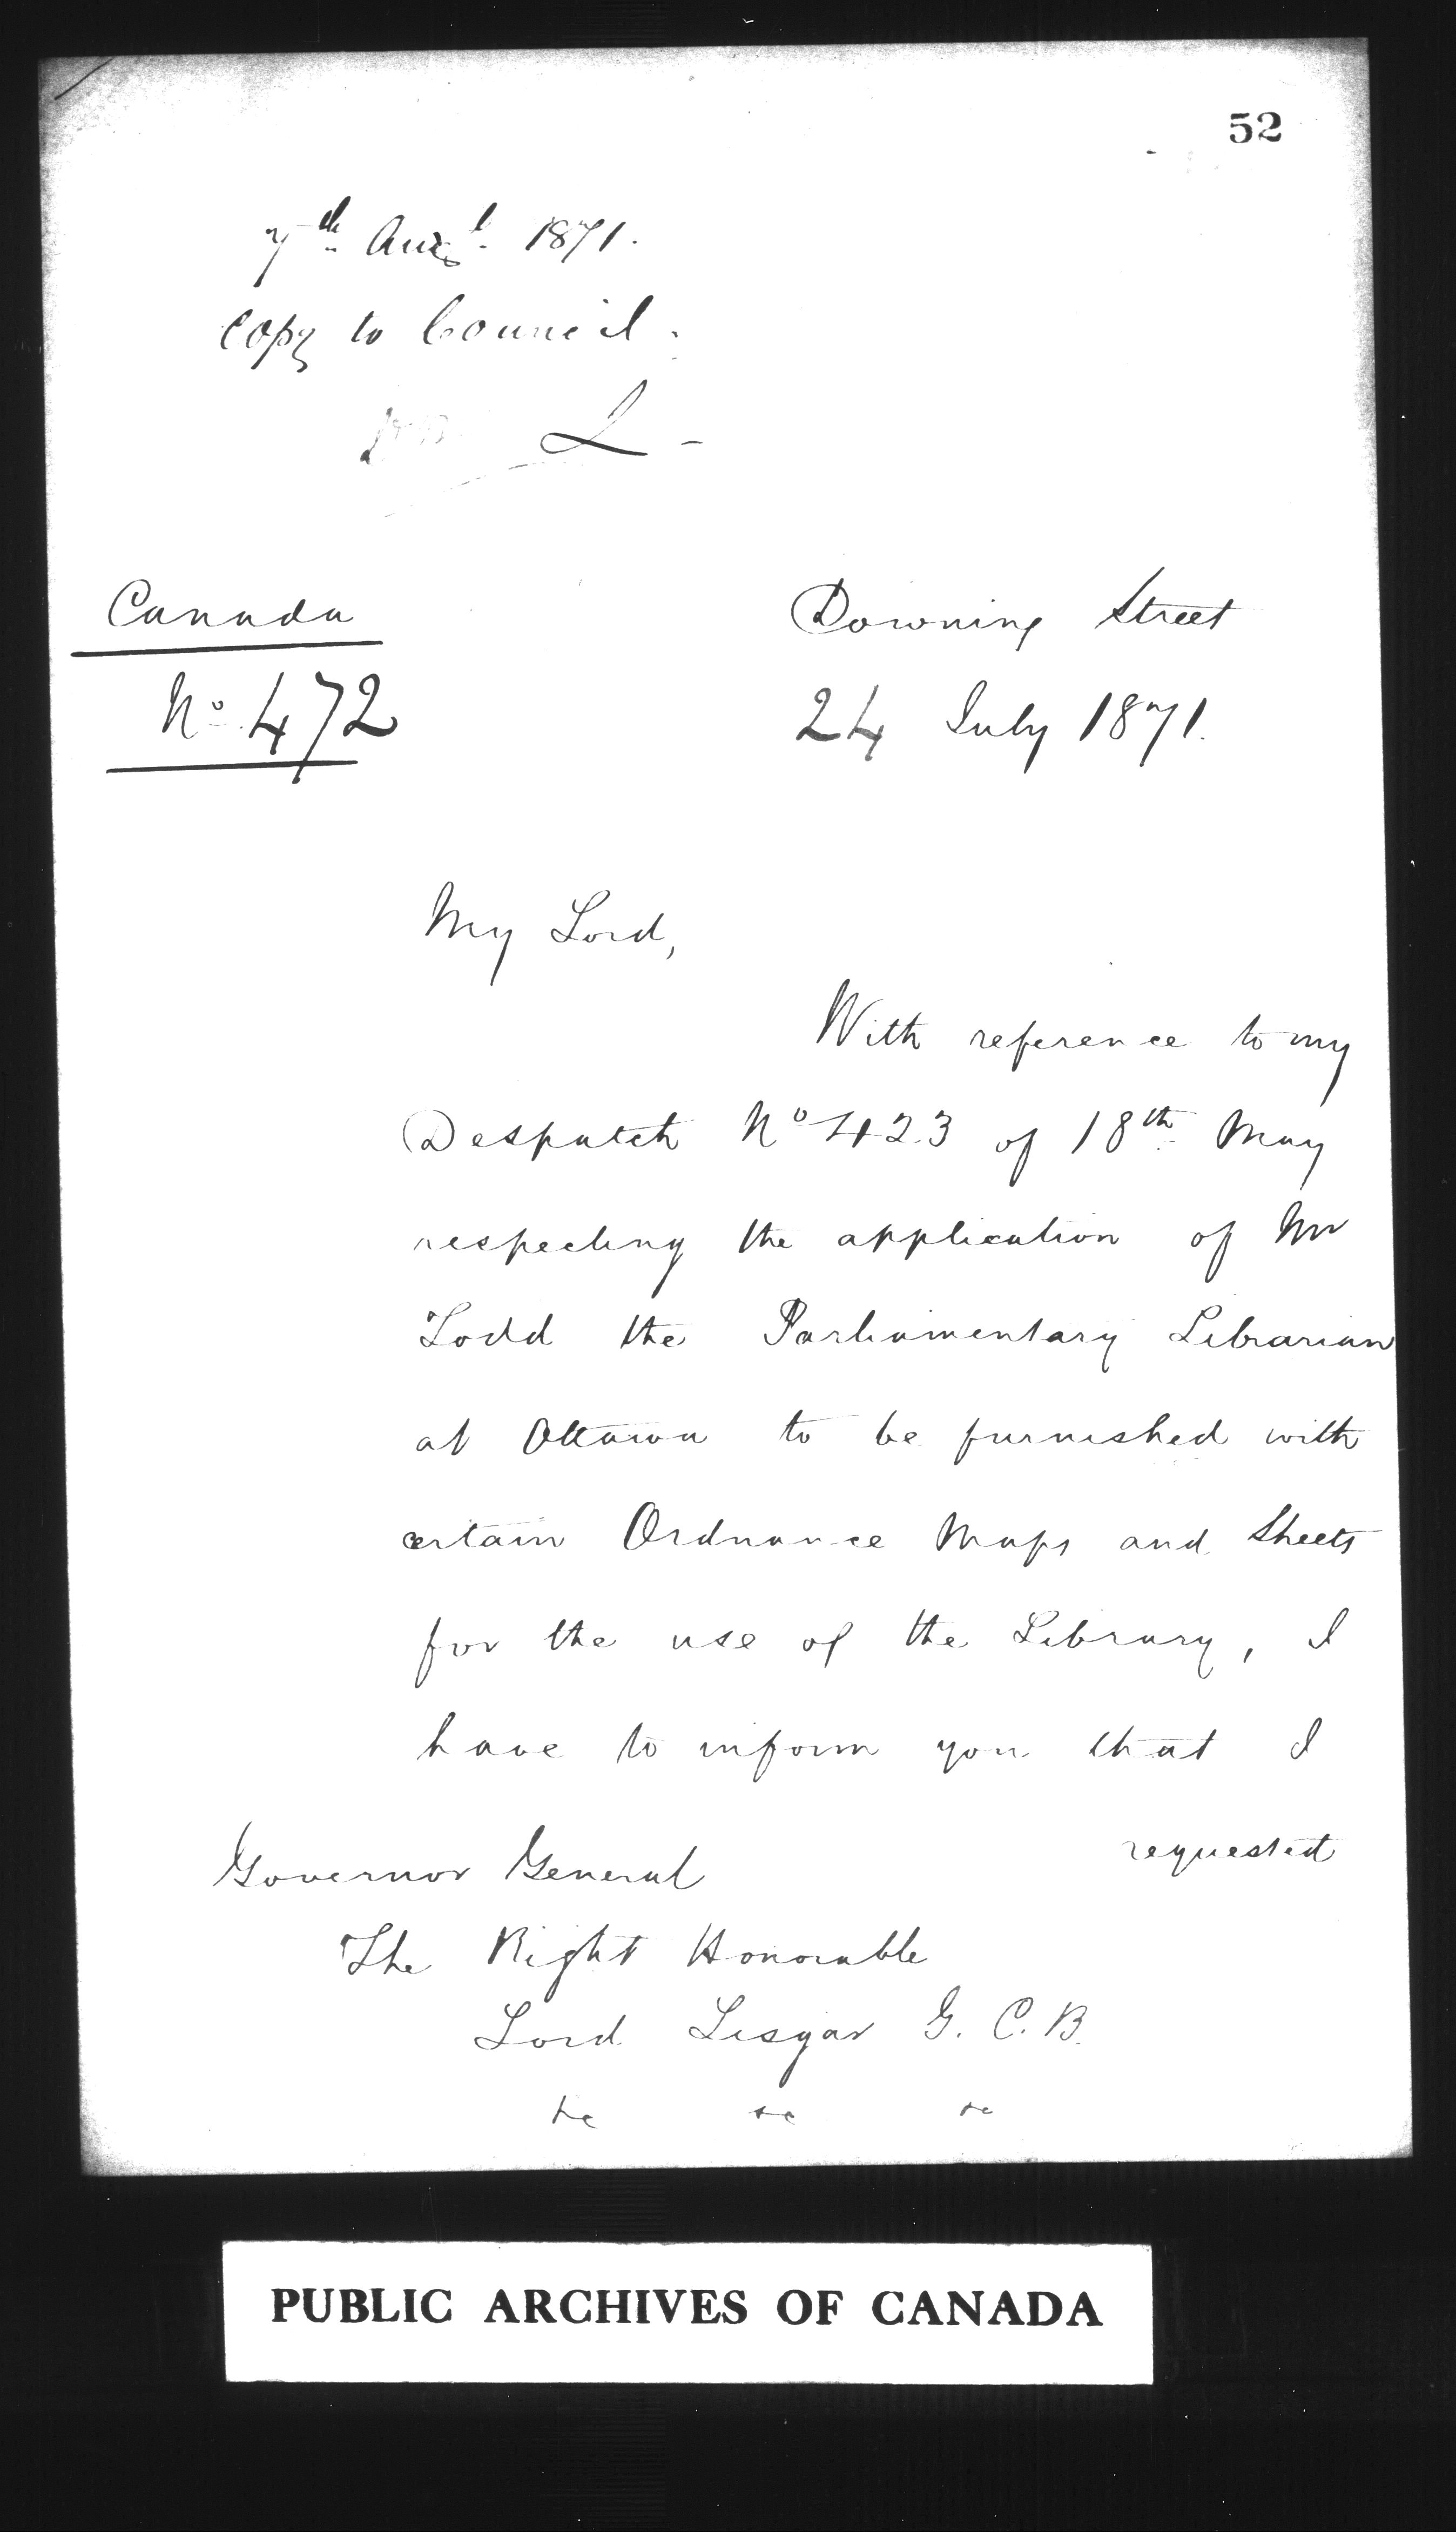 52
7th Augt. 1871.
Copy to Council.
L -
Canada
No. 472
Downing Street
24 July 1871.
My Lord,
With reference to my
Despatch No 423 of 18th May
respecting the application of Mr
Todd the Parliamentary Librarian
at Ottawa to be furnished with
certain Ordnance Maps and Sheets
for the use of the Library, I
have to inform you that I
requested
Governor General
The Right Honorable
Lord Lisgar G. C. B.
&c &c &c
PUBLIC ARCHIVES OF CANADA